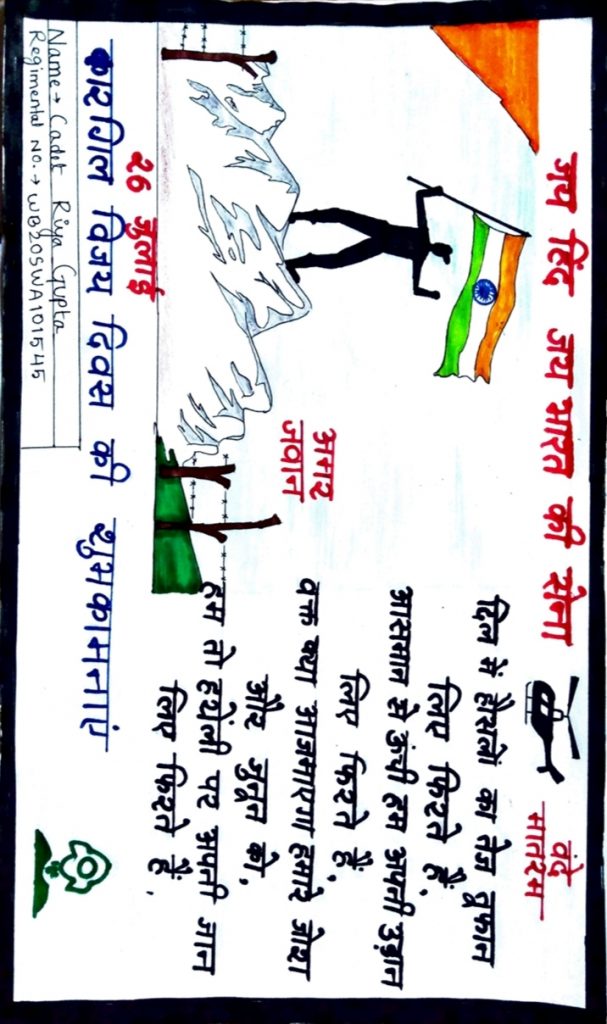 जय हिंद जय भारत की सेना
वंदे
मातरम
दिल में हौसलों का तेज तूफान
लिए फिरते हैं,
आसमान से ऊंची हम अपनी उड़ान
लिए फिरते हैं,
वक्त क्या आजमाएगा हमारे जोश
और जुनून को,
हम तो हथेली पर अपनी जान
लिए फिरते हैं,
अमर
जवान
26 जुलाई
कारगिल विजय दिवस की शुभकामनाएं
Name → Cadet Riya Gupta
Regimental No. → WB20SWA101545